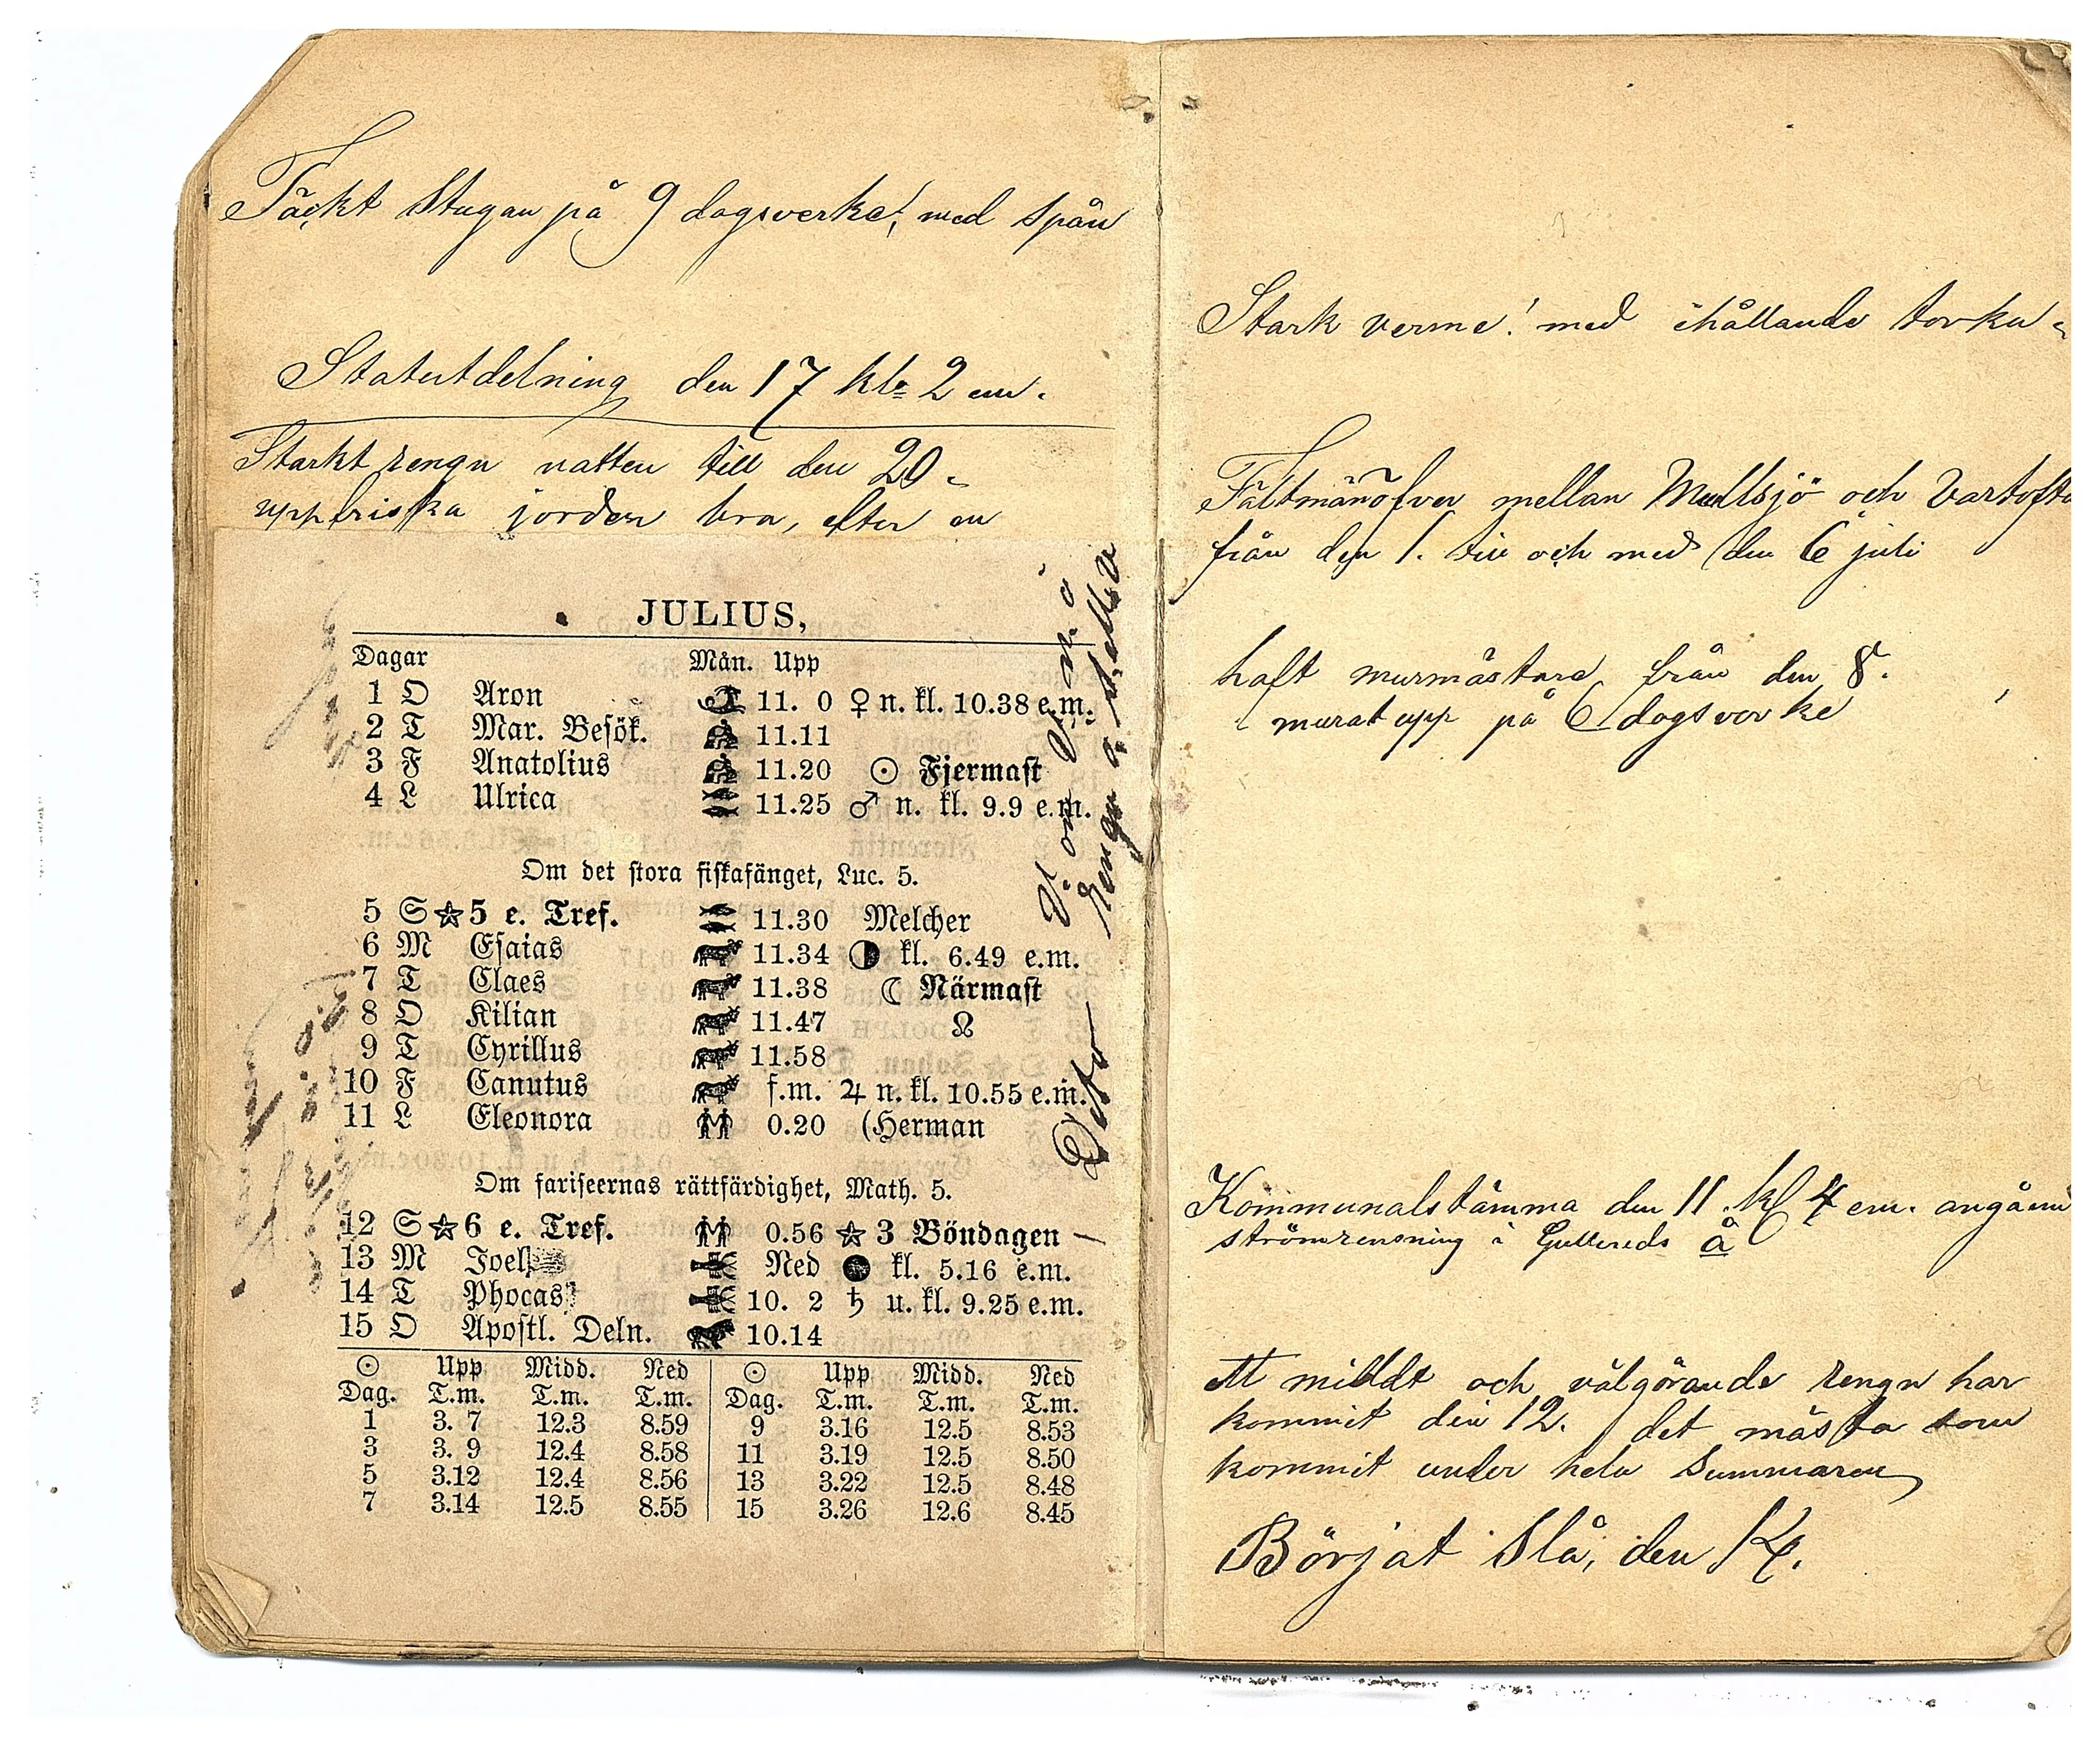 Täckt Stugan på 9 dagsverke!, med spån
Statutdelning den 17 kl. 2 em.
Starkt rengn natten till den 20
uppfriska jorden bra, efter en
JULIUS,
Dagar Mån. Upp
1 O Aron 11. 0 ♀ n. kl. 10.38 e.m.
2 T Mar. Besök. 11.11
3 F Anatolius 11.20 ☉ Fjermast
4 L Ulrica 11.25 ♂ n. kl. 9.9 e.m.
Om det stora fiskafänget, Luc. 5.
5 S ☆ 5 e. Tref. 11.30 Melcher
6 M Esaias 11.34 ◑ kl. 6.49 e.m.
7 T Claes 11.38 ☾ Närmast
8 O Kilian 11.47 ☊
9 T Cyrillus 11.58
10 F Canutus f.m. ♃ n. kl. 10.55 e.m.
11 L Eleonora 0.20 (Herman
Om fariseernas rättfärdighet, Math. 5.
12 S ☆ 6 e. Tref. 0.56 ☆ 3 Böndagen
13 M Joel Ned ● kl. 5.16 e.m.
14 T Phocas 10. 2 ♄ u. kl. 9.25 e.m.
15 O Apostl. Deln. 10.14
☉ Upp Midd. Ned ☉ Upp Midd. Ned
Dag. T.m. T.m. T.m. Dag. T.m. T.m. T.m.
1 3. 7 12.3 8.59 9 3.16 12.5 8.53
3 3. 9 12.4 8.58 11 3.19 12.5 8.50
5 3.12 12.4 8.56 13 3.22 12.5 8.48
7 3.14 12.5 8.55 15 3.26 12.6 8.45
Stark verme! med ihållande torka
Fältmänöfver mellan Mullsjö och Vartofta
från den 1. till och med den 6 juli
haft murmästare från den 8.
murat upp på 6 dagsverke
Kommunalstämma den 11. kl 4 em. angåend
strömrensning i Gullereds å
ett mildt och välgörande rengn har
kommit den 12. det mästa som
kommit under hela Summaren
Börjat Slå, den 14.